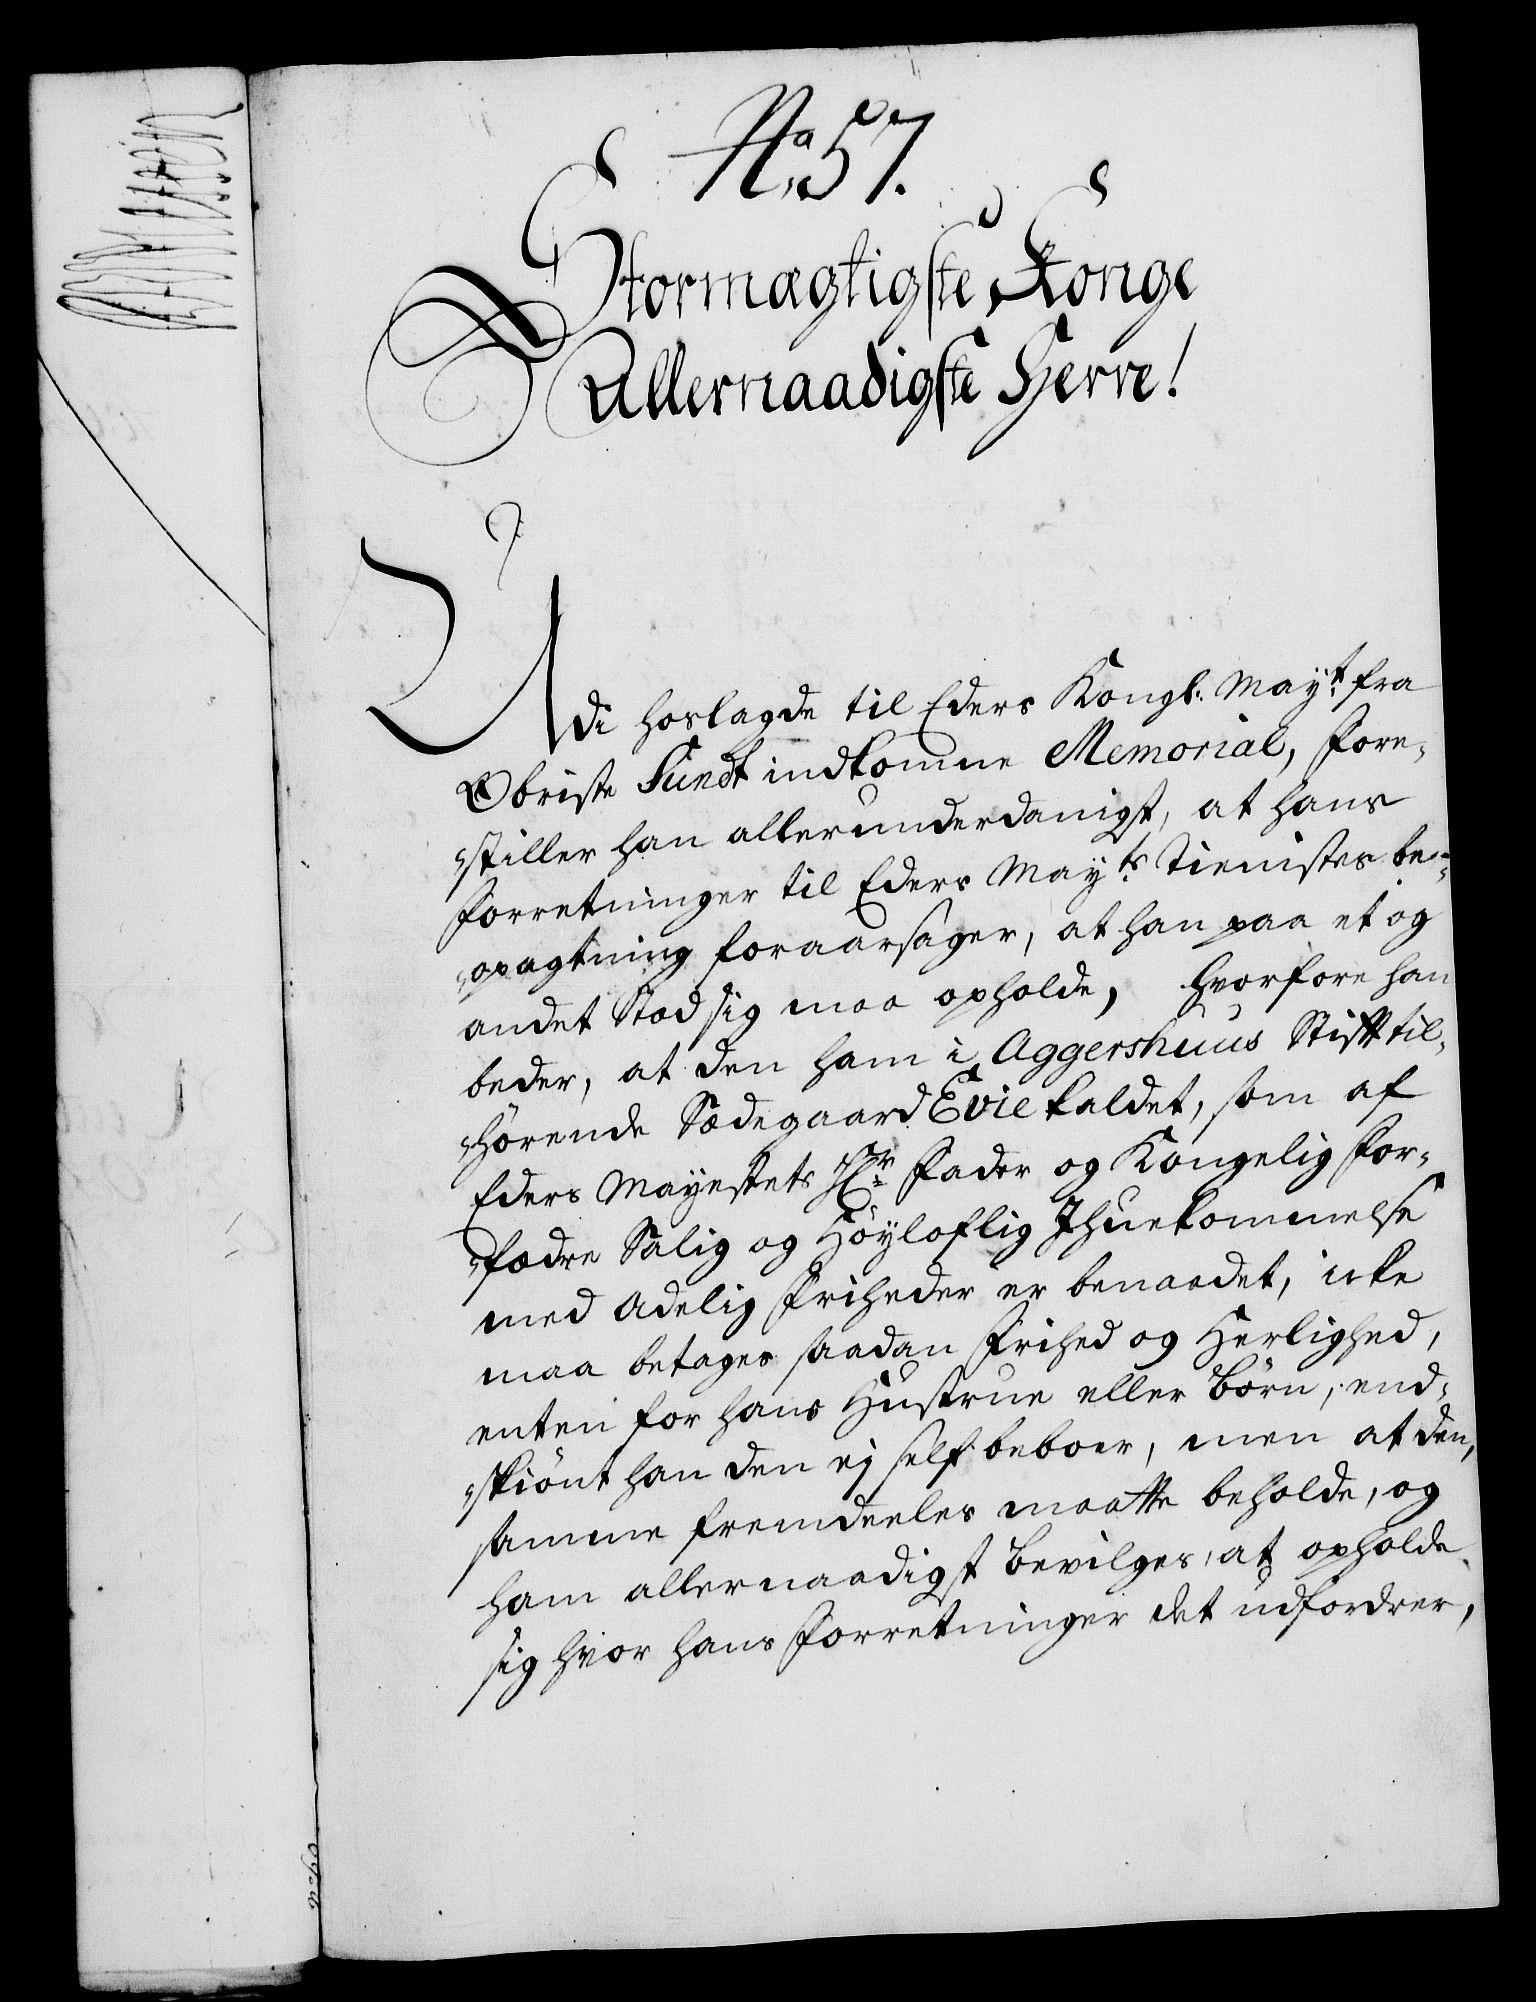 No 57.
Stormægtigste Konge
Allernaadigste Herre!
Udi hoslagde til Eders Kongl: Mayt: fra
Obriste Sundt indkomne Memorial, fore-
stiller han allerunderdanigst, at hans
Forretninger til Eders Mayts: Tienistes be-
opagtning foraarsager, at han paa et og
andet Stod sig maa opholde, hvorfore han
beder, at den ham i Aggershuus Stifft til-
hørende Sædegaard Evie kaldet, som af
Eders Mayestets Hr: Fader og Kongelig For-
fædre Salig og Høyloflig Ihuekommelse
med Adelig Friheder er benaadet, icke
maa betages saadan Frihed og Herlighed,
enten for hans Hustrue eller Børn, end-
skiønt han den ej self beboer, men at den,
samme fremdeeles maatte beholde, og
ham allernaadigst bevilges, at opholde
sig hvor hans Forretninger det udfordrer,